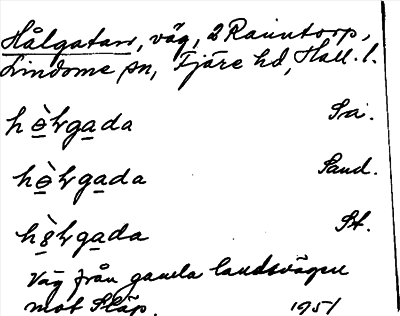 Hålgatan, väg, 2 Ranntorp,
Lindome sn, Fjäre hd, Hall. l.
hòlgada
hòlgada Sand.
hòlgada St.
Väg från gamla landsvägen
mot Släp. 1951